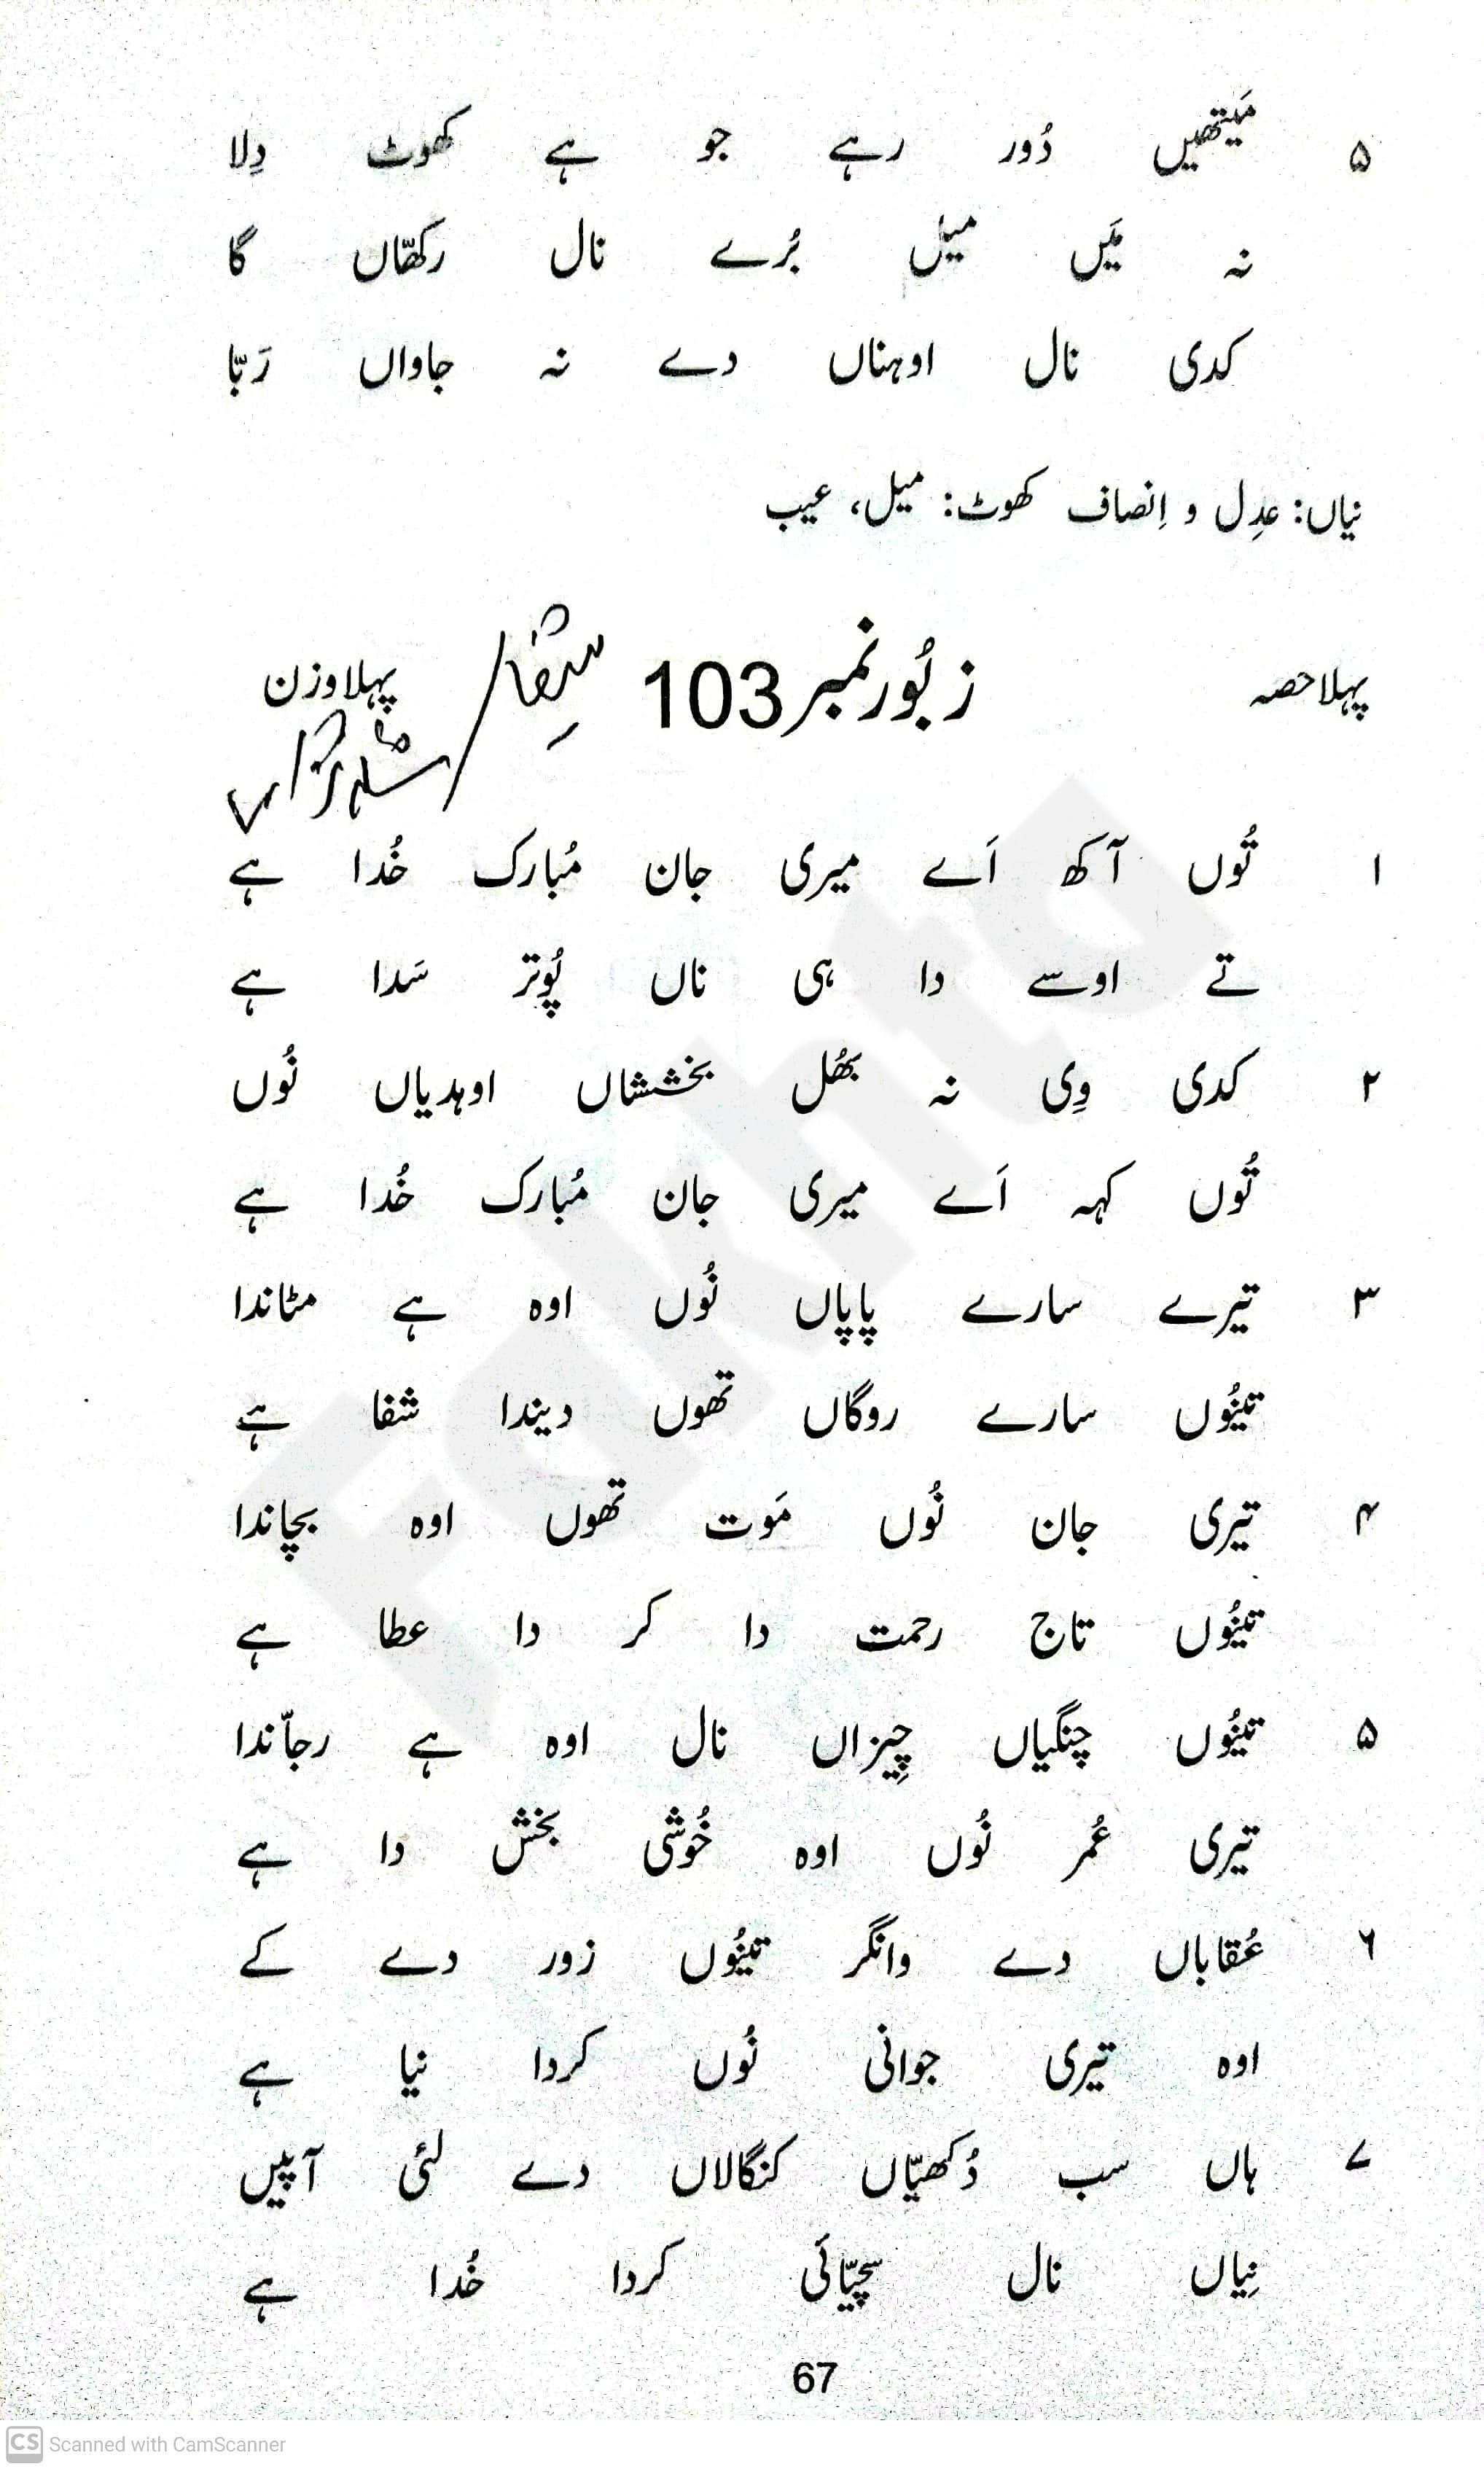 ۵ مَیتھیں دُور رہے جو ہے کھوٹ دِلا
نہ مَیں میل بُرے نال رکھّاں گا
کدی نال اوہناں دے نہ جاواں رَبّا
نیاں: عدِل و اِنصاف کھوٹ: میل، عیب
پہلا حصہ زبُور نمبر 103 پہلا وزن
۱ تُوں آکھ اَے میری جان مُبارک خُدا ہے
تے اوسے دا ہی ناں پَوِتر سَدا ہے
۲ کدی وِی نہ بھُل بخششاں اوہدیاں نُوں
تُوں کہہ اَے میری جان مُبارک خُدا ہے
۳ تیرے سارے پاپاں نُوں اوہ ہے مٹاندا
تینُوں سارے روگاں تھوں دیندا شفا ہے
۴ تیری جان نُوں مَوت تھوں اوہ بچاندا
تینُوں تاج رحمت دا کر دا عطا ہے
۵ تینُوں چنگیاں چِیزاں نال اوہ ہے رجّاندا
تیری عُمر نُوں اوہ خُوشی بخش دا ہے
۶ عُقاباں دے وانگر تینُوں زور دے کے
اوہ تیری جوانی نُوں کردا نیا ہے
۷ ہاں سب دُکھیّاں کنگالاں دے لئی آپیں
نِیاں نال سچیّائی کردا خُدا ہے
67
CS Scanned with CamScanner
Fakhta